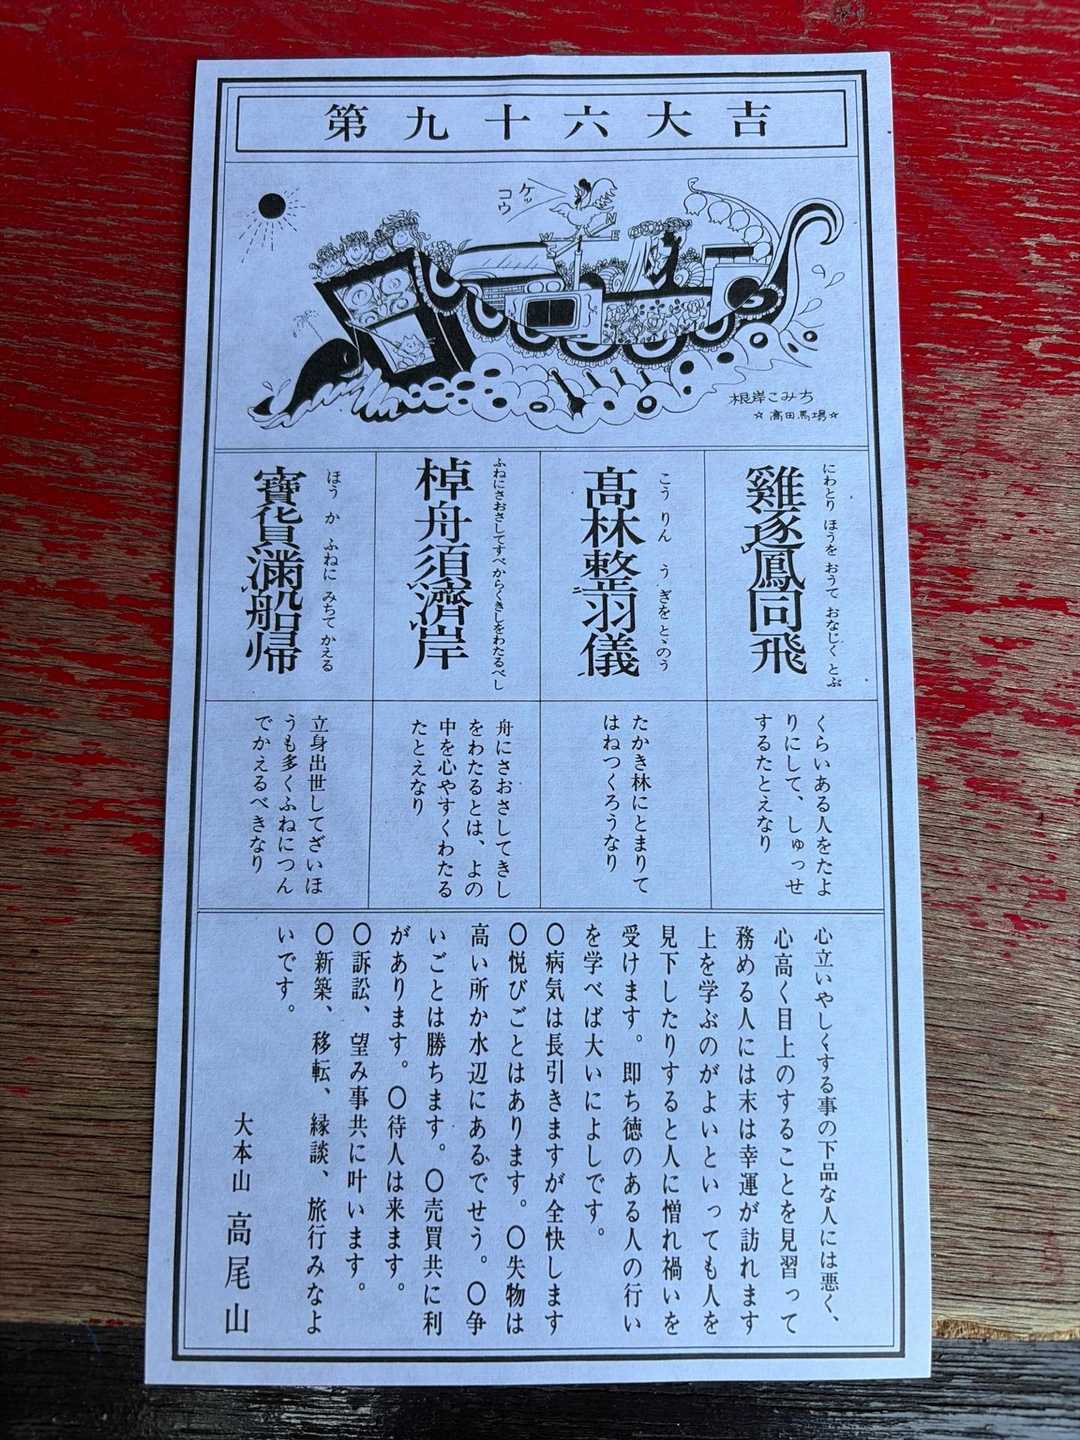 第九十六大吉
ケッ
コウ
N
W
E
根岸こみち
☆高田馬場☆
にわとり ほうを おうて おなじく とぶ
雞逐鳳同飛
こう りん う ぎを とゝのう
髙林整羽儀
ふねにさおさしてすべからくきしをわたるべし
棹舟須濟岸
ほう か ふねに みちて かえる
寶貨満船帰
くらいある人をたよ
りにして、しゅっせ
するたとえなり
たかき林にとまりて
はねつくろうなり
舟にさおさしてきし
をわたるとは、よの
中を心やすくわたる
たとえなり
立身出世してざいほ
うも多くふねにつん
でかえるべきなり
心立いやしくする事の下品な人には悪く、
心高く目上のすることを見習って
務める人には末は幸運が訪れます
上を学ぶのがよいといっても人を
見下したりすると人に憎れ禍いを
受けます。即ち徳のある人の行い
を学べば大いによしです。
○病気は長引きますが全快します
○悦びごとはあります。○失物は
高い所か水辺にあるでせう。○争
いごとは勝ちます。○売買共に利
があります。○待人は来ます。
○訴訟、望み事共に叶います。
○新築、移転、縁談、旅行みなよ
いです。
大本山 高尾山